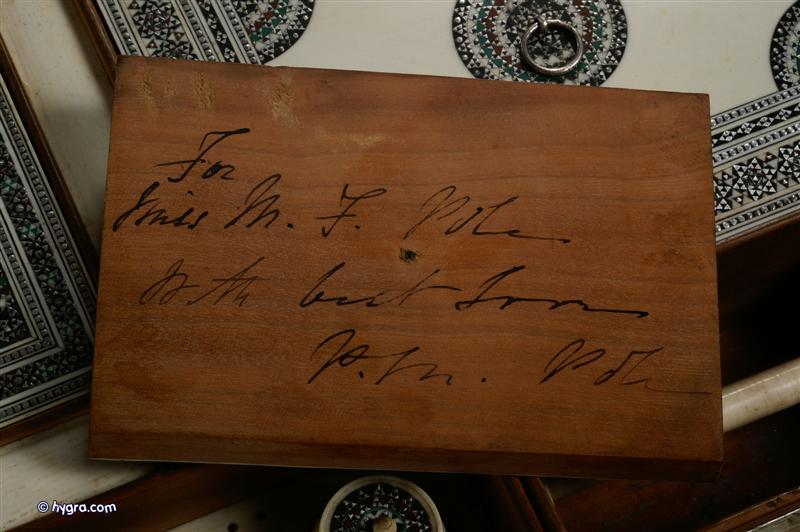 For
Miss M. F. Pole
With best love
P. M. Pole
© hygra.com